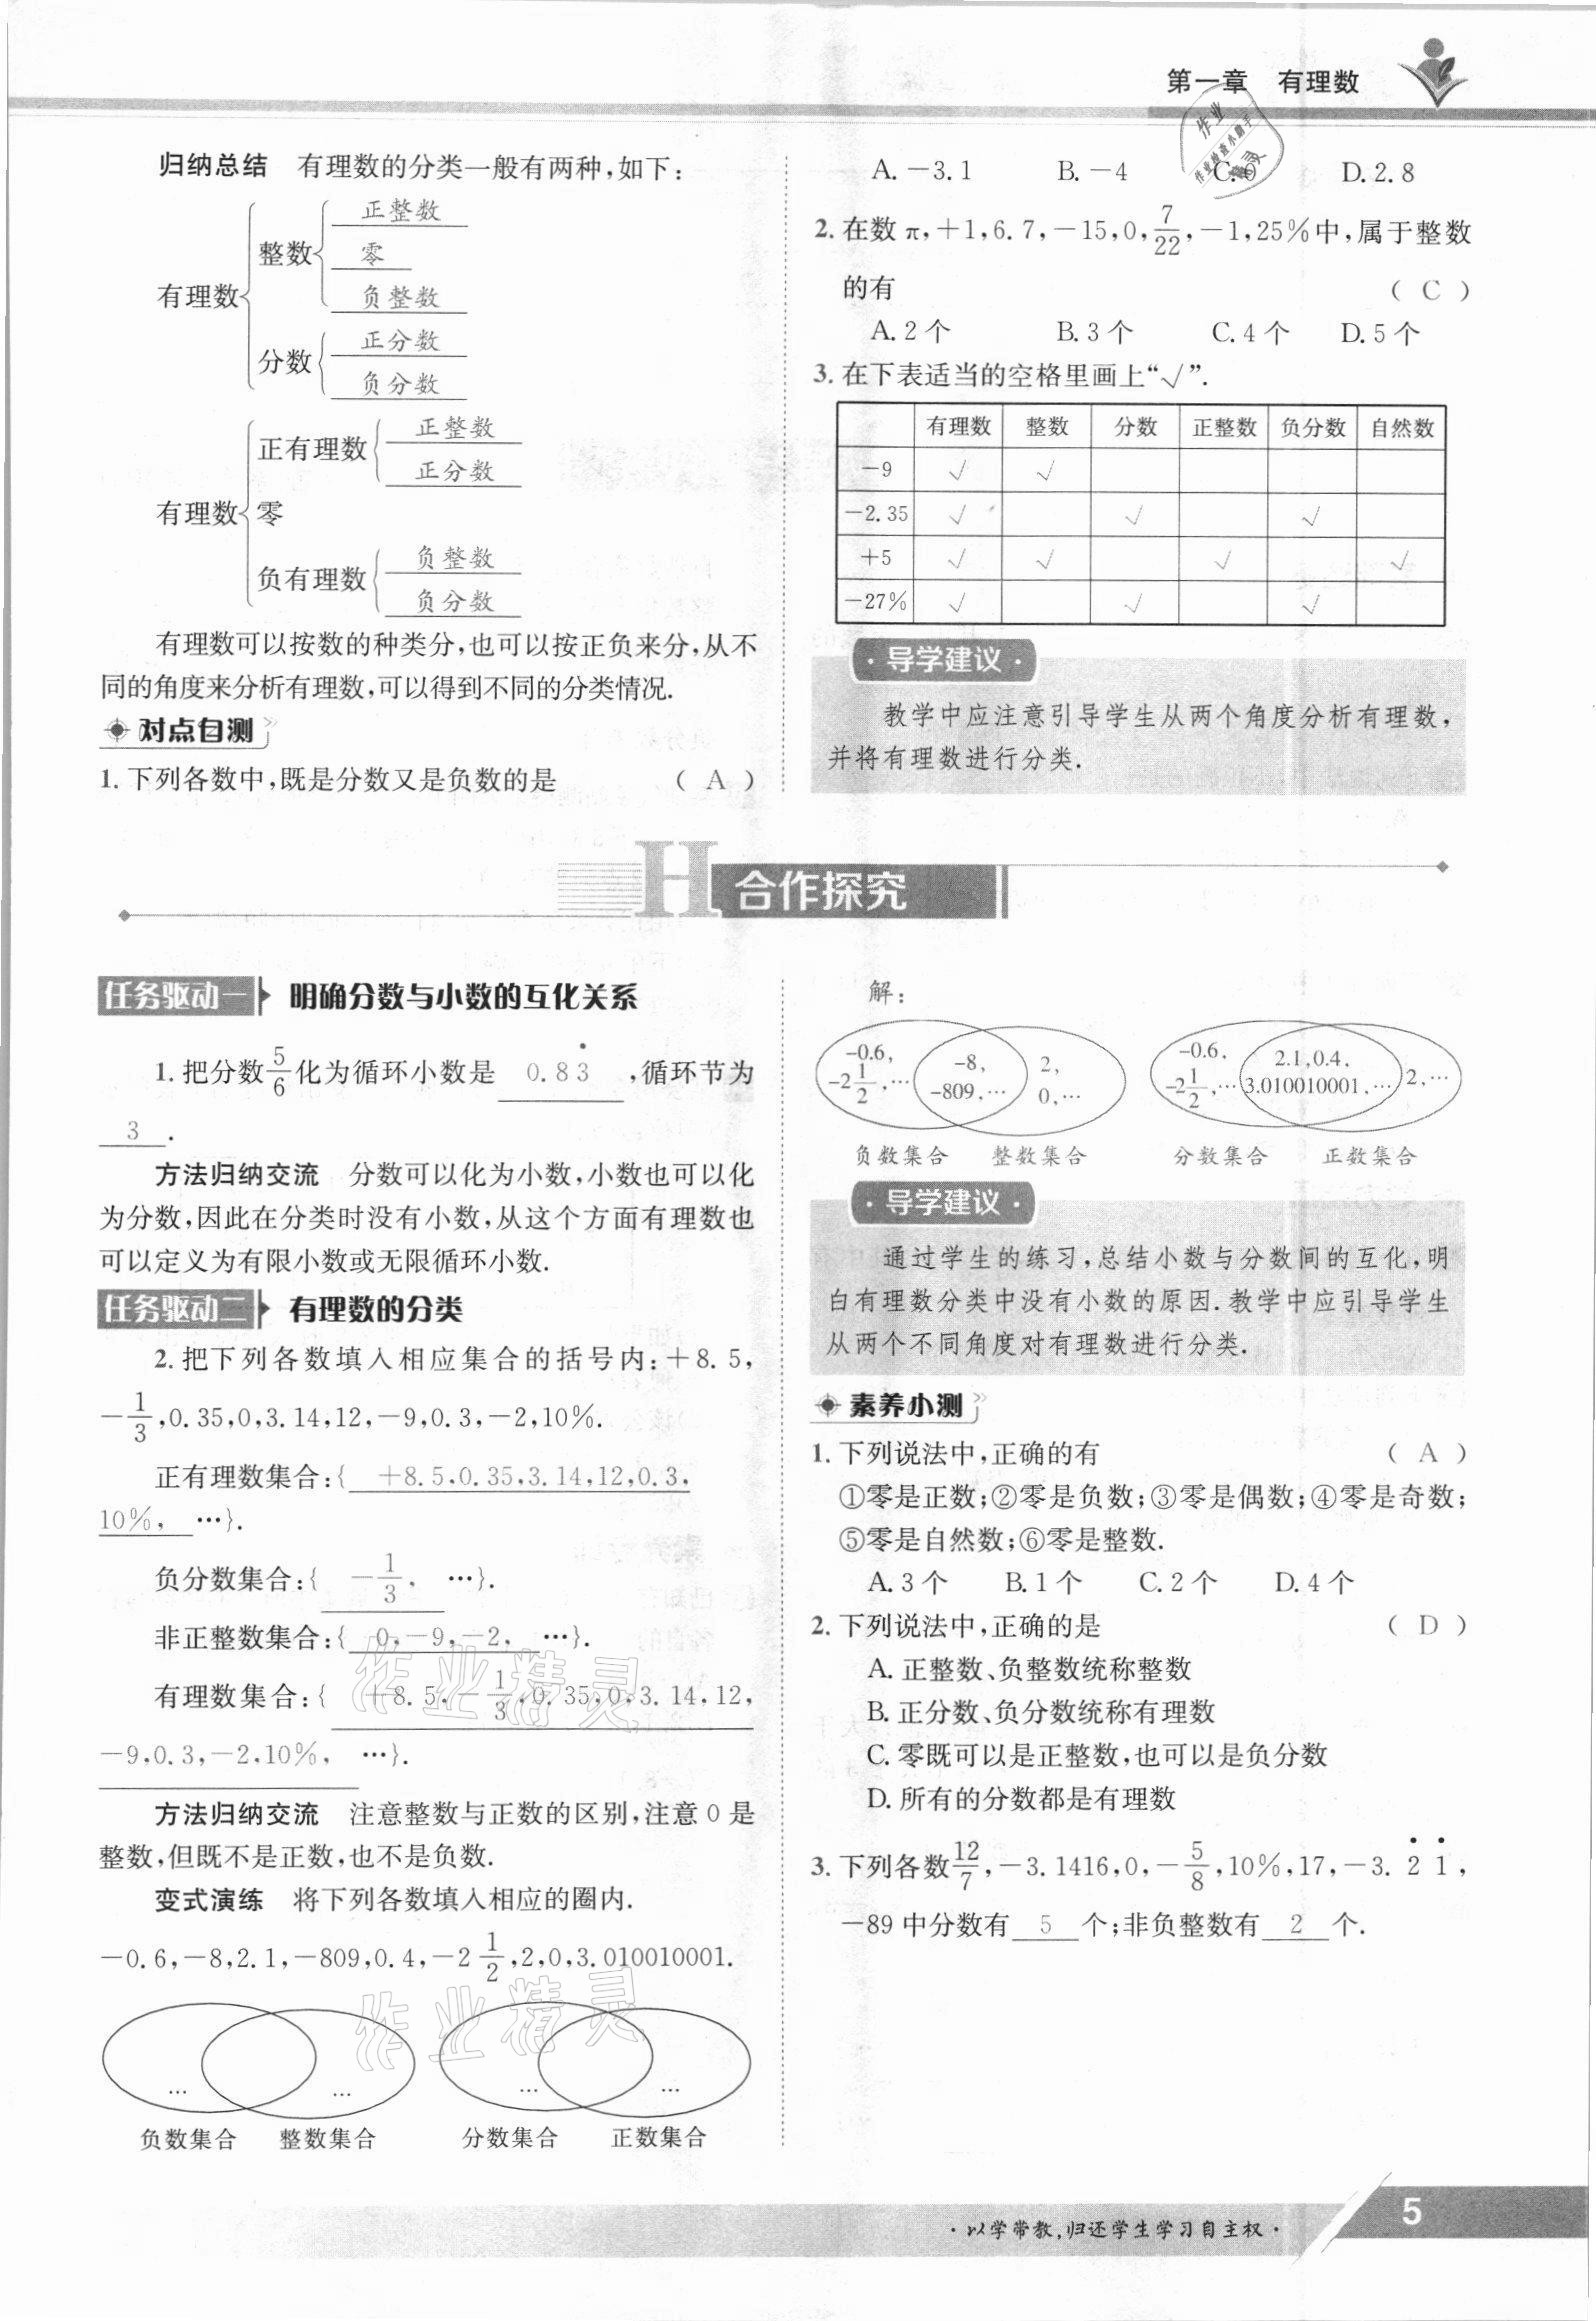 第一章 有理数
归纳总结 有理数的分类一般有两种,如下:
有理数
整数
正整数
零
负整数
分数
正分数
负分数
有理数
正有理数
正整数
正分数
零
负有理数
负整数
负分数
有理数可以按数的种类分,也可以按正负来分,从不
同的角度来分析有理数,可以得到不同的分类情况.
对点自测
1. 下列各数中,既是分数又是负数的是 ( A )
A. -3.1 B. -4 C. 0 D. 2.8
2. 在数 π,+1,6.7,-15,0,7/22,-1,25%中,属于整数
的有 ( C )
A. 2个 B. 3个 C. 4个 D. 5个
3. 在下表适当的空格里画上“√”.
有理数 整数 分数 正整数 负分数 自然数
-9 √ √
-2.35 √ √ √
+5 √ √ √ √
-27% √ √ √
·导学建议·
教学中应注意引导学生从两个角度分析有理数,
并将有理数进行分类.
H 合作探究
任务驱动一 明确分数与小数的互化关系
1. 把分数5/6化为循环小数是 0.83̇ ,循环节为
3 .
方法归纳交流 分数可以化为小数,小数也可以化
为分数,因此在分类时没有小数,从这个方面有理数也
可以定义为有限小数或无限循环小数.
任务驱动二 有理数的分类
2. 把下列各数填入相应集合的括号内:+8.5,
-1/3,0.35,0,3.14,12,-9,0.3,-2,10%.
正有理数集合:{ +8.5,0.35,3.14,12,0.3,
10%, …}.
负分数集合:{ -1/3, …}.
非正整数集合:{ 0,-9,-2, …}.
有理数集合:{ +8.5,-1/3,0.35,0,3.14,12,
-9,0.3,-2,10%, …}.
方法归纳交流 注意整数与正数的区别,注意 0 是
整数,但既不是正数,也不是负数.
变式演练 将下列各数填入相应的圈内.
-0.6,-8,2.1,-809,0.4,-2 1/2,2,0,3.010010001.
… … … …
负数集合 整数集合 分数集合 正数集合
解:
-0.6, -8, 2, -0.6, 2.1,0.4,
-2 1/2,… -809,… 0,… -2 1/2,… 3.010010001,… 2,…
负数集合 整数集合 分数集合 正数集合
·导学建议·
通过学生的练习,总结小数与分数间的互化,明
白有理数分类中没有小数的原因.教学中应引导学生
从两个不同角度对有理数进行分类.
素养小测
1. 下列说法中,正确的有 ( A )
①零是正数;②零是负数;③零是偶数;④零是奇数;
⑤零是自然数;⑥零是整数.
A. 3个 B. 1个 C. 2个 D. 4个
2. 下列说法中,正确的是 ( D )
A. 正整数、负整数统称整数
B. 正分数、负分数统称有理数
C. 零既可以是正整数,也可以是负分数
D. 所有的分数都是有理数
3. 下列各数12/7,-3.1416,0,-5/8,10%,17,-3.2̇1̇,
-89 中分数有 5 个;非负整数有 2 个.
作业精灵
作业精灵
·以学带教,归还学生学习自主权·
5